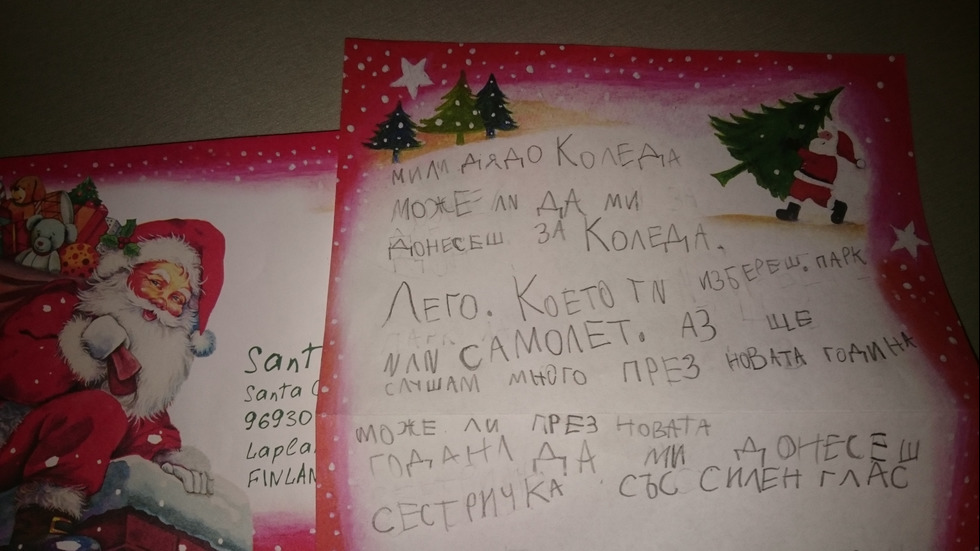 Sant
Santa C
96930
Lapla
FINLAN
МИЛИ ДЯДО КОЛЕДА
МОЖЕ ЛИ ДА МИ
ДОНЕСЕШ ЗА КОЛЕДА.
ЛЕГО. КОЕТО ТИ ИЗБЕРЕШ. ПАРК
ИЛИ САМОЛЕТ. АЗ ЩЕ
СЛУШАМ МНОГО ПРЕЗ НОВАТА ГОДИНА
МОЖЕ ЛИ ПРЕЗ НОВАТА
ГОДАНА ДА МИ ДОНЕСЕШ
СЕСТРИЧКА СЪС СИЛЕН ГЛАС